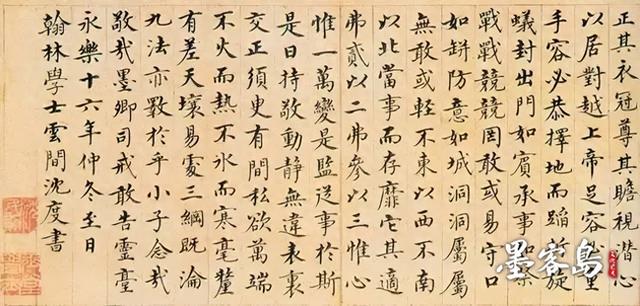 正其衣冠尊其瞻視潛心
以居對越上帝足容必重
手容必恭擇地而蹈折旋
蟻封出門如賓承事如祭
戰戰兢兢罔敢或易守口
如缾防意如城洞洞屬屬
無敢或輕不東以西不南
以北當事而存靡它其適
弗貳以二弗參以三惟心
惟一萬變是監從事於斯
是曰持敬動靜無違表裏
交正須臾有間私欲萬端
不火而熱不冰而寒毫釐
有差天壤易處三綱既淪
九法亦斁於乎小子念哉
敬哉墨卿司戒敢告靈臺
永樂十六年仲冬至日
翰林學士雲間沈度書
墨客島